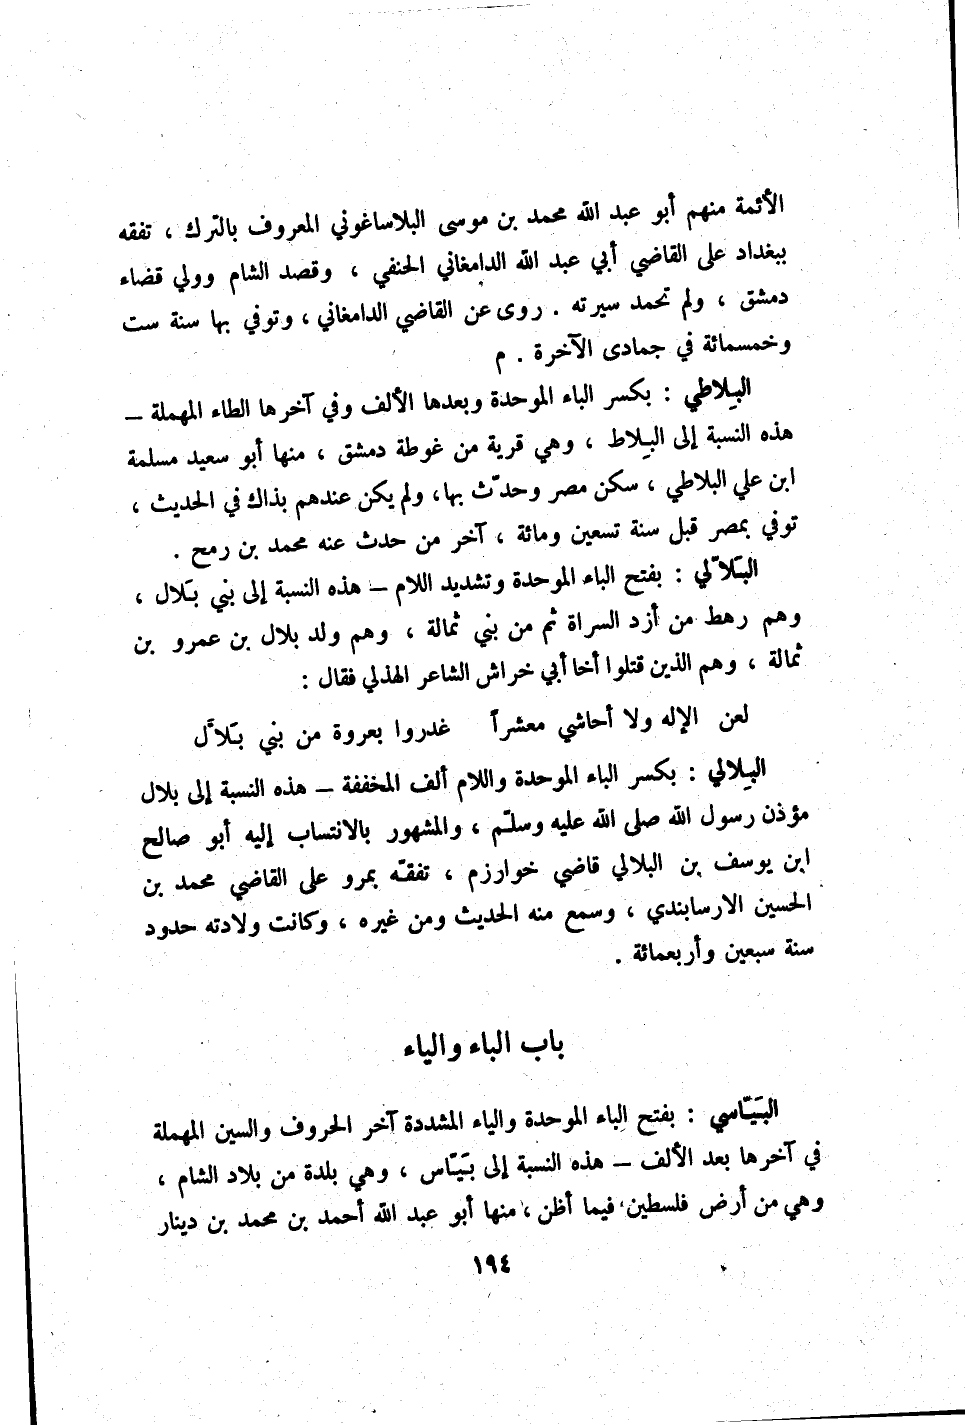 الأئمة منهم أبو عبد الله محمد بن موسى البلاساغوني المعروف بالترك ، تفقه
ببغداد على القاضي أبي عبد الله الدامغاني الحنفي ، وقصد الشام وولي قضاء
دمشق ، ولم تحمد سيرته . روى عن القاضي الدامغاني ، وتوفي بها سنة ست
وخمسمائة في جمادى الآخرة . م
البِلاطي : بكسر الباء الموحدة وبعدها الألف وفي آخرها الطاء المهملة –
هذه النسبة إلى البِلاط ، وهي قرية من غوطة دمشق ، منها أبو سعيد مسلمة
ابن علي البلاطي ، سكن مصر وحدّث بها، ولم يكن عندهم بذاك في الحديث ،
توفي بمصر قبل سنة تسعين ومائة ، آخر من حدث عنه محمد بن رمح .
البَلاّلي : بفتح الباء الموحدة وتشديد اللام – هذه النسبة إلى بني بَلال ،
وهم رهط من أزد السراة ثم من بني ثمالة ، وهم ولد بلال بن عمرو بن
ثمالة ، وهم الذين قتلوا أخا أبي خراش الشاعر الهذلي فقال :
لعن الإله ولا أحاشي معشراً غدروا بعروة من بني بَلاَّل
البِلالي : بكسر الباء الموحدة واللام ألف المخففة – هذه النسبة إلى بلال
مؤذن رسول الله صلى الله عليه وسلّم ، والمشهور بالانتساب إليه أبو صالح
ابن يوسف بن البلالي قاضي خوارزم ، تفقّه بمرو على القاضي محمد بن
الحسين الارسابندي ، وسمع منه الحديث ومن غيره ، وكانت ولادته حدود
سنة سبعين وأربعمائة .
باب الباء والياء
البَيّاسي : بفتح الباء الموحدة والياء المشددة آخر الحروف والسين المهملة
في آخرها بعد الألف – هذه النسبة إلى بَيّاس ، وهي بلدة من بلاد الشام ،
وهي من أرض فلسطين فيما أظن ، منها أبو عبد الله أحمد بن محمد بن دينار
١٩٤